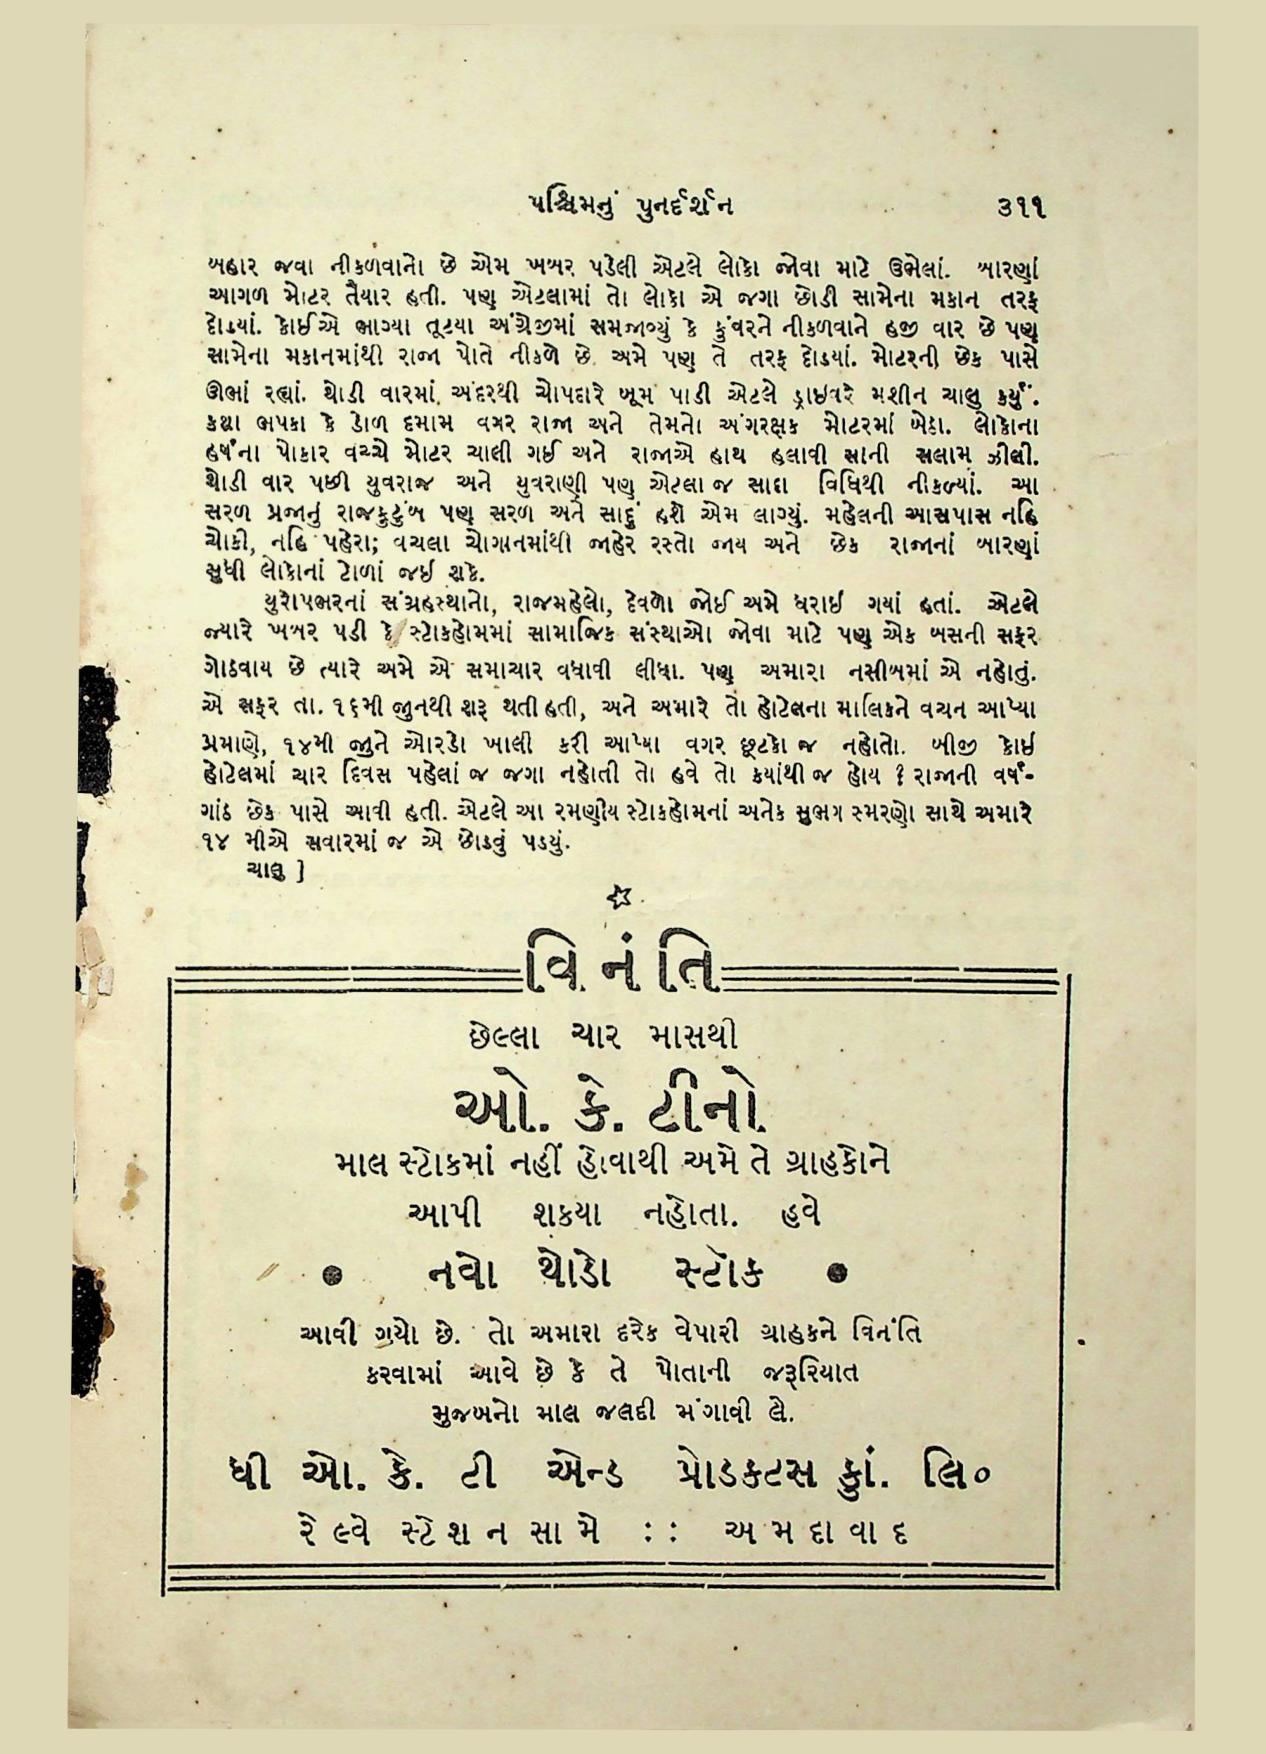 પશ્ચિમનું પુનર્દર્શન ૩૧૧
બહાર જવા નીકળવાનો છે એમ ખબર પડેલી એટલે લોકો જોવા માટે ઉભેલાં. બારણાં
આગળ મોટર તૈયાર હતી. પણ એટલામાં તો લોકો એ જગા છોડી સામેના મકાન તરફ
દોડયાં. કોઈએ ભાગ્યા તૂટયા અંગ્રેજીમાં સમજાવ્યું કે કુંવરને નીકળવાને હજી વાર છે પણ
સામેના મકાનમાંથી રાજા પોતે નીકળે છે. અમે પણ તે તરફ દોડયાં. મોટરની છેક પાસે
ઊભાં રહ્યાં. થોડી વારમાં અંદરથી ચોપદારે બૂમ પાડી એટલે ડ્રાઈવરે મશીન ચાલુ કર્યું.
કશા ભપકા કે ડોળ દમામ વગર રાજા અને તેમનો અંગરક્ષક મોટરમાં બેઠા. લોકોના
હર્ષના પોકાર વચ્ચે મોટર ચાલી ગઈ અને રાજાએ હાથ હલાવી સૌની સલામ ઝીલી.
થોડી વાર પછી યુવરાજ અને યુવરાણી પણ એટલા જ સાદા વિધિથી નીકળ્યાં. આ
સરળ પ્રજાનું રાજકુટુંબ પણ સરળ અને સાદું હશે એમ લાગ્યું. મહેલની આસપાસ નહિ
ચોકી, નહિ પહેરા; વચલા ચોગાનમાંથી જાહેર રસ્તો જાય અને છેક રાજાનાં બારણાં
સુધી લોકોનાં ટોળાં જઈ શકે.
યુરોપભરનાં સંગ્રહસ્થાનો, રાજમહેલો, દેવળો જોઈ અમે ધરાઈ ગયાં હતાં. એટલે
જ્યારે ખબર પડી કે સ્ટોકહોમમાં સામાજિક સંસ્થાઓ જોવા માટે પણ એક બસની સફર
ગોઠવાય છે ત્યારે અમે એ સમાચાર વધાવી લીધા. પણ અમારા નસીબમાં એ નહોતું.
એ સફર તા. ૧૬મી જુનથી શરૂ થતી હતી, અને અમારે તો હોટેલના માલિકને વચન આપ્યા
પ્રમાણે, ૧૪મી જુને ઓરડો ખાલી કરી આપ્યા વગર છૂટકો જ નહોતો. બીજી કોઈ
હોટેલમાં ચાર દિવસ પહેલાં જ જગા નહોતી તો હવે તો કયાંથી જ હોય ? રાજાની વર્ષ-
ગાંઠ છેક પાસે આવી હતી. એટલે આ રમણીય સ્ટોકહોમનાં અનેક સુભગ સ્મરણો સાથે અમારે
૧૪ મીએ સવારમાં જ એ છોડવું પડયું.
ચાલુ ]
વિનંતિ
છેલ્લા ચાર માસથી
ઓ. કે. ટીનો
માલ સ્ટોકમાં નહીં હોવાથી અમે તે ગ્રાહકોને
આપી શકયા નહોતા. હવે
● નવો થોડો સ્ટૉક ●
આવી ગયો છે. તો અમારા દરેક વેપારી ગ્રાહકને વિનંતિ
કરવામાં આવે છે કે તે પોતાની જરૂરિયાત
મુજબનો માલ જલદી મંગાવી લે.
ધી ઓ. કે. ટી એન્ડ પ્રોડકટસ કું. લિ૦
રેલ્વે સ્ટેશન સામે :: અમદાવાદ